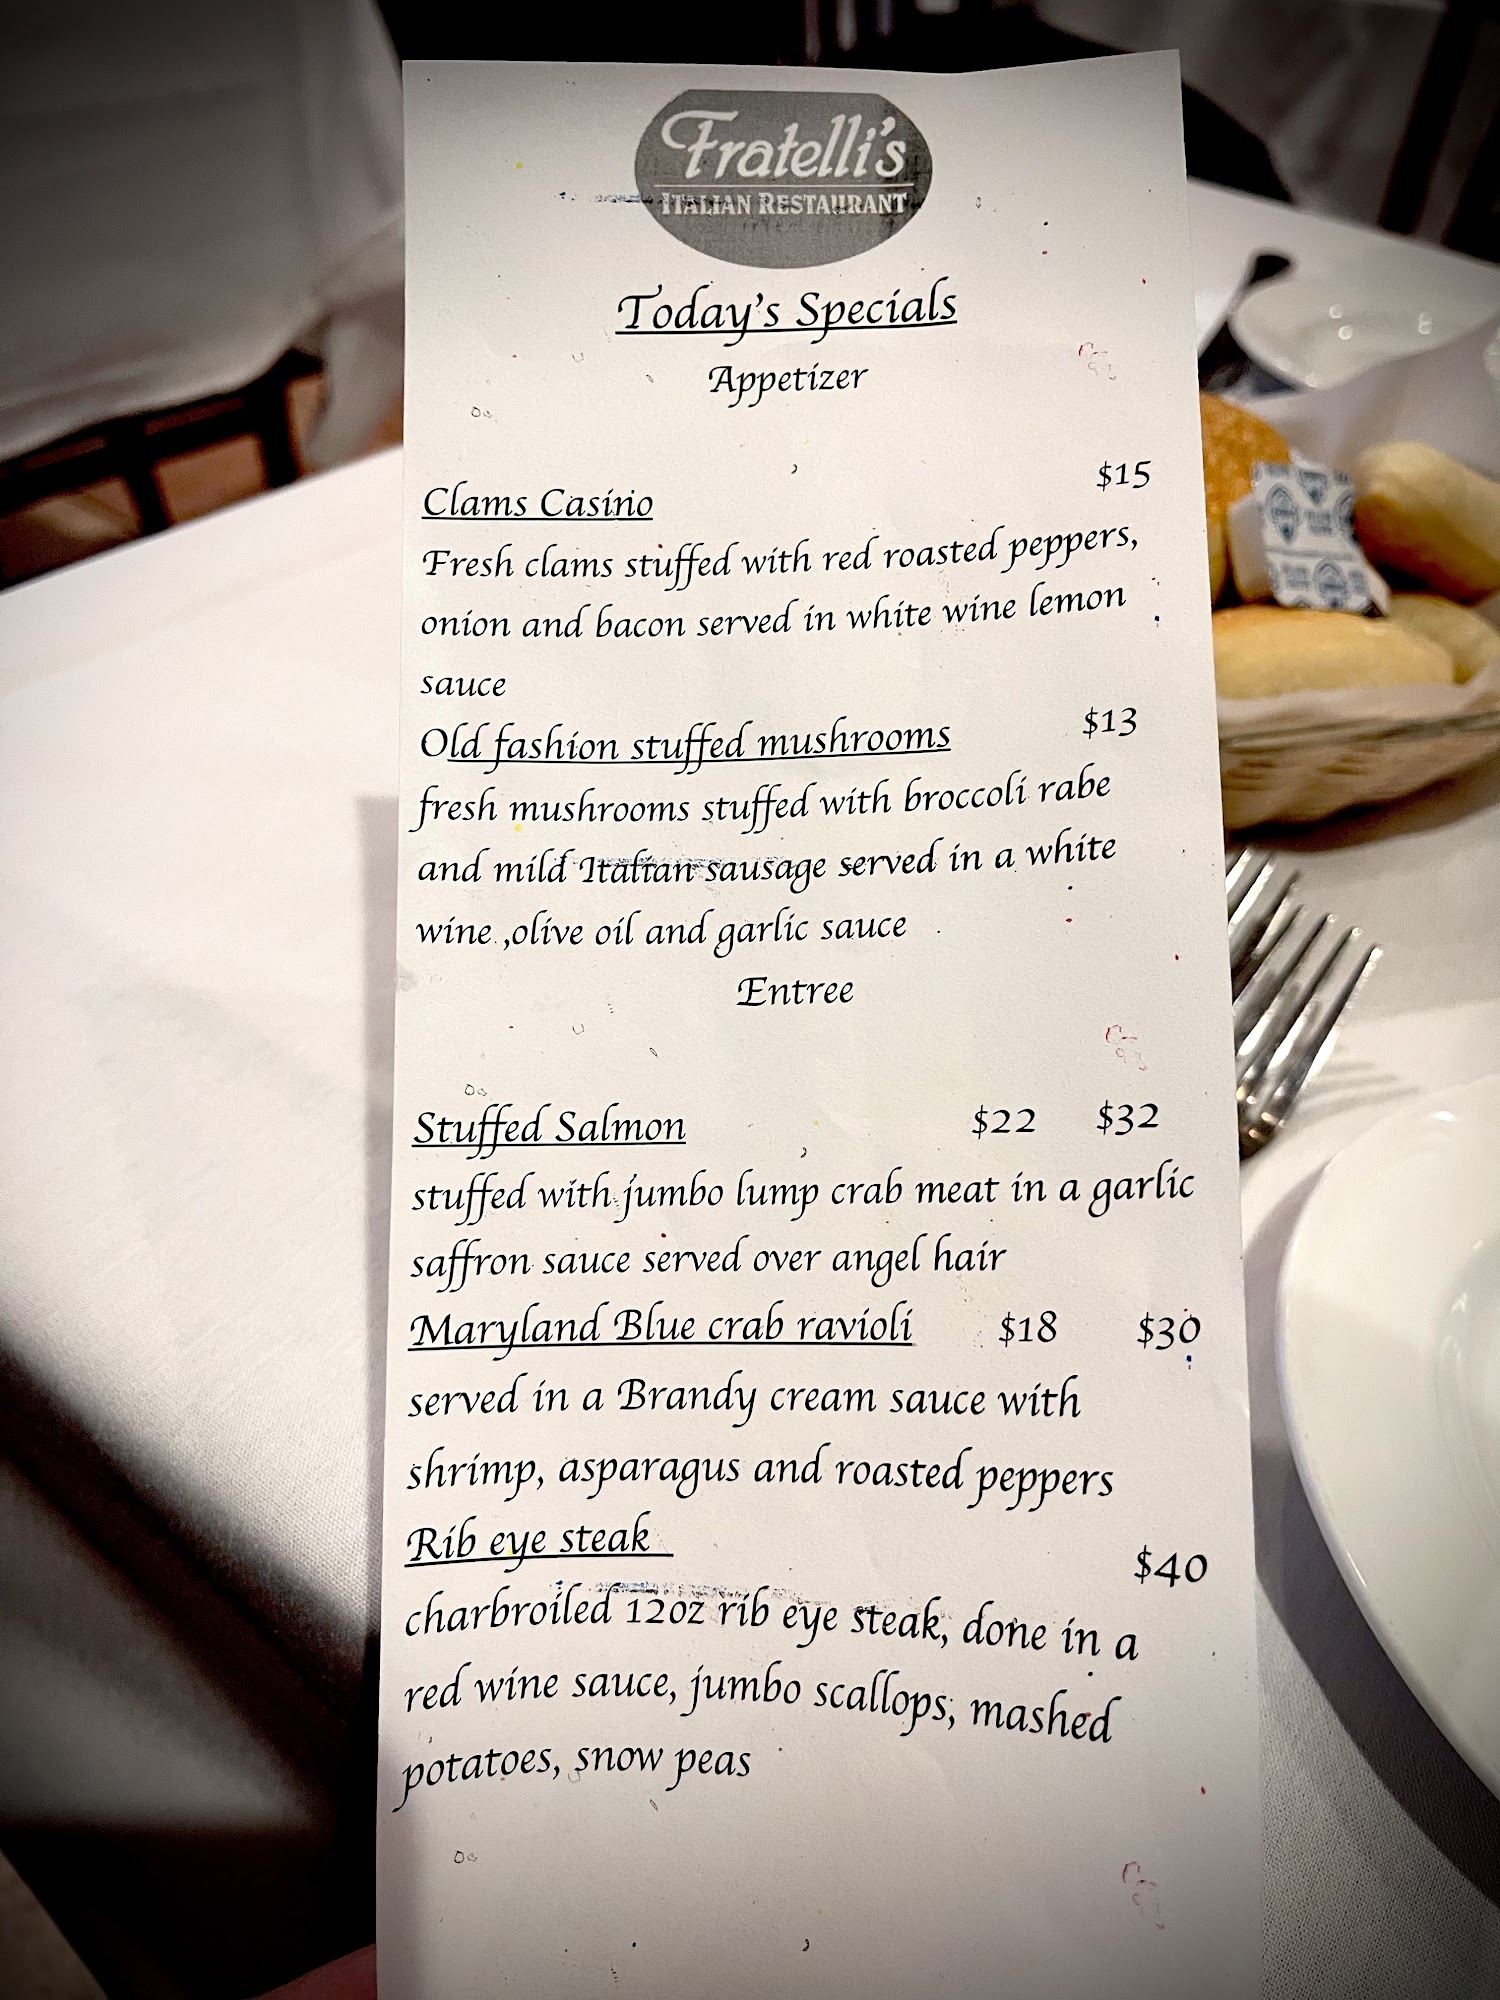 Fratelli's
ITALIAN RESTAURANT
Today's Specials
Appetizer
Clams Casino $15
Fresh clams stuffed with red roasted peppers,
onion and bacon served in white wine lemon
sauce
Old fashion stuffed mushrooms $13
fresh mushrooms stuffed with broccoli rabe
and mild Italian sausage served in a white
wine ,olive oil and garlic sauce
Entree
Stuffed Salmon $22 $32
stuffed with jumbo lump crab meat in a garlic
saffron sauce served over angel hair
Maryland Blue crab ravioli $18 $30
served in a Brandy cream sauce with
shrimp, asparagus and roasted peppers
Rib eye steak $40
charbroiled 12oz rib eye steak, done in a
red wine sauce, jumbo scallops, mashed
potatoes, snow peas